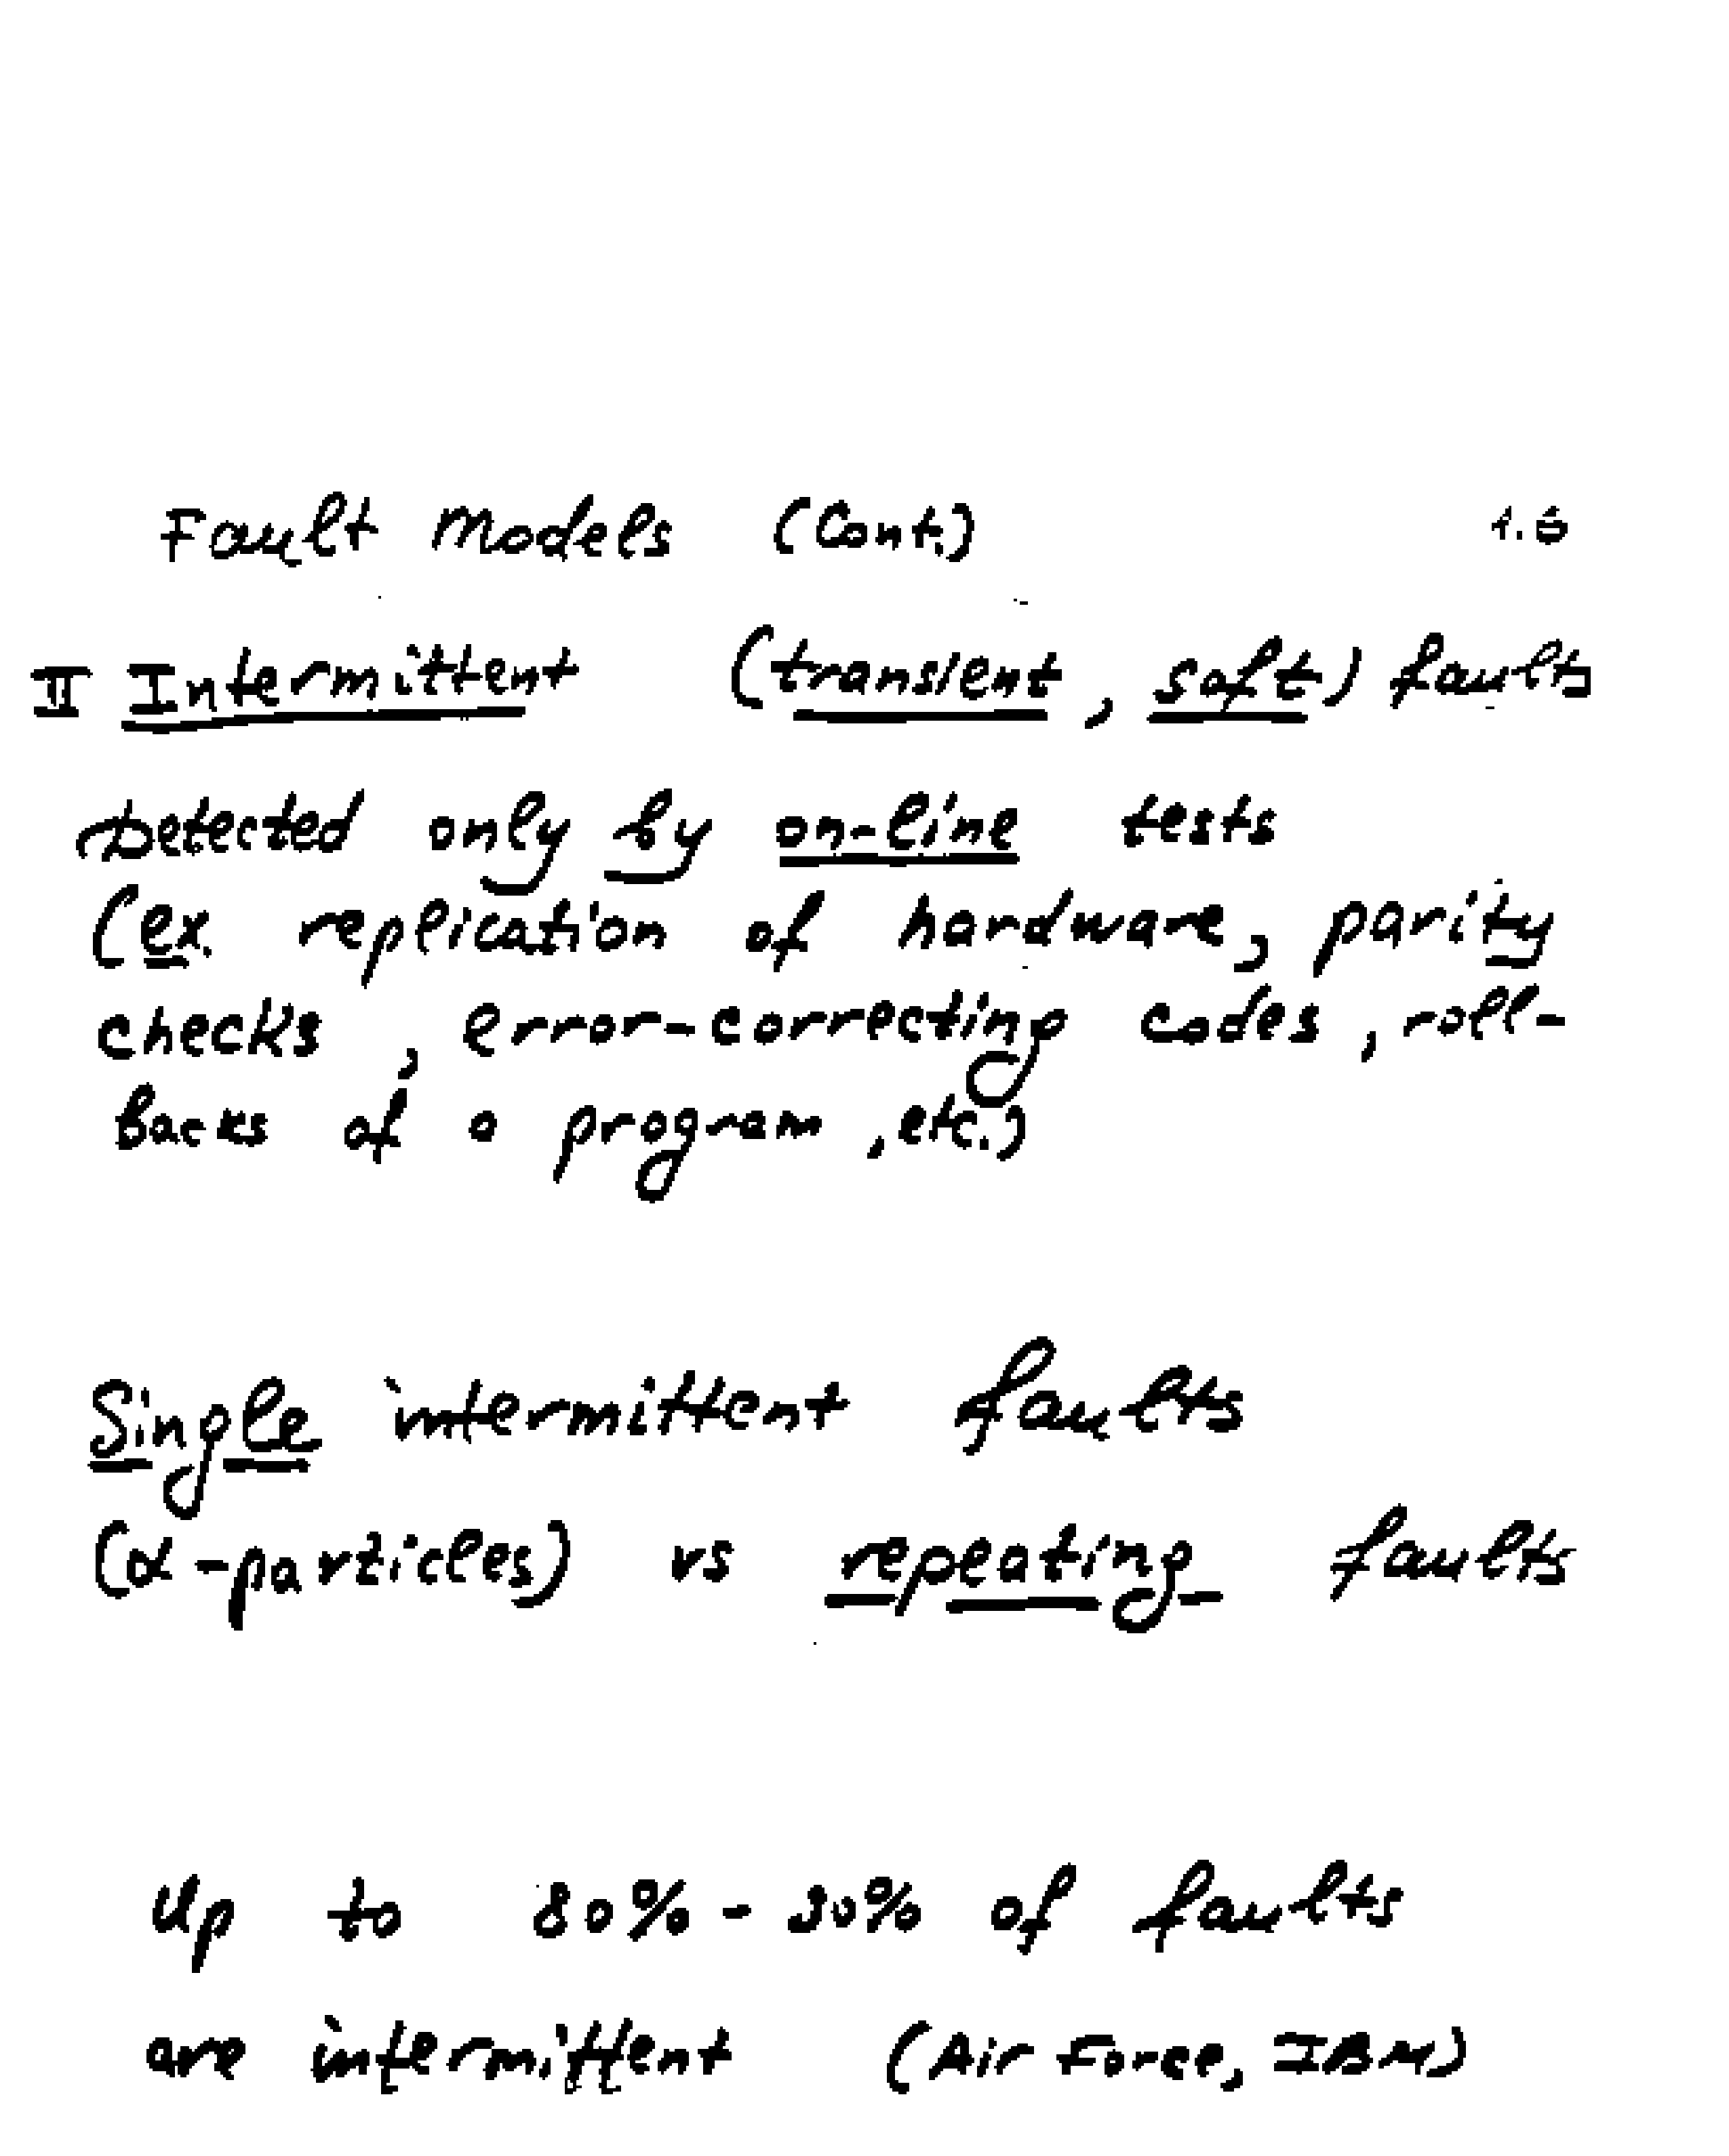 Fault Models (Cont.) 1.6
II Intermittent (transient, soft) faults
Detected only by on-line tests
(ex. replication of hardware, parity
checks, error-correcting codes, roll-
backs of a program, etc.)
Single intermittent faults
(α-particles) vs repeating faults
Up to 80% - 90% of faults
are intermittent (Air Force, IBM)